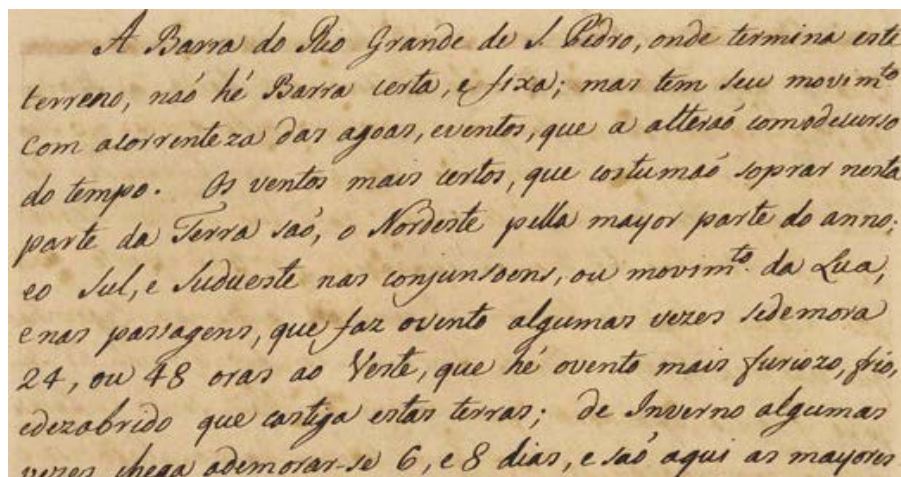 A Barra do Rio Grande de S. Pedro, onde termina este
terreno, naó hé Barra certa, e fixa; mas tem seu movim.to
com acorrenteza das agoas, eventos, que a alteraó comodecurso
do tempo. Os ventos mais certos, que costumaó soprar nesta
parte da Terra saó, o Nordeste pella mayor parte do anno;
eo Sul, e Sudueste nas conjunsoens, ou movim.to da Lua,
enas passagens, que faz ovento algumas vezes sedemora
24, ou 48 oras ao Veste, que hé ovento mais furiozo, frio,
edezabrido que castiga estas terras; de Inverno algumas
vezes chega ademorar-se 6, e 8 dias, e saó aqui as mayores